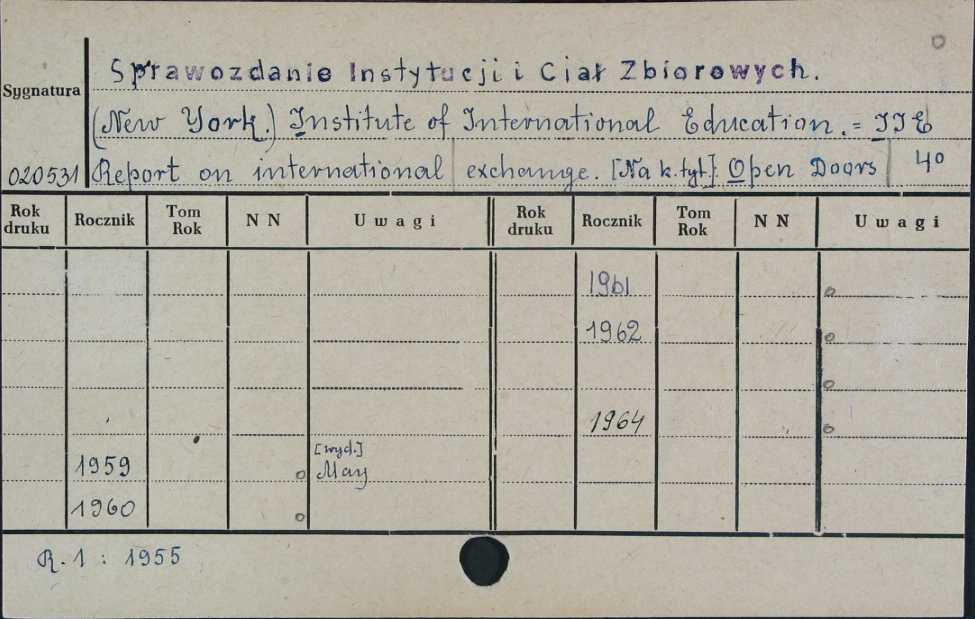 Sprawozdanie Instytucji i Ciał Zbiorowych.
Sygnatura
(New York.) Institute of International Education. = IIE
020531 Report on international exchange. [Na k. tyt.]: Open Doors 4°
Rok druku Rocznik Tom Rok N N Uwagi Rok druku Rocznik Tom Rok N N Uwagi
1961
1962
1964
[wyd.]
1959 May
1960
R. 1 : 1955